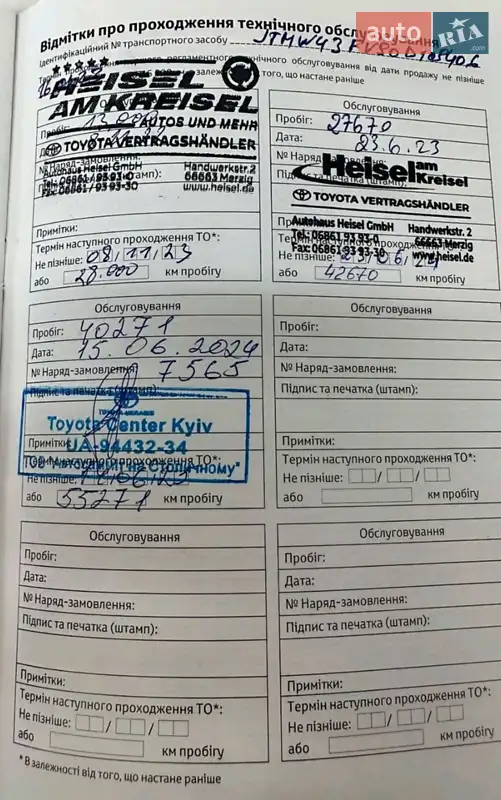 auto
RIA.com
Відмітки про проходження технічного обслуговування
Ідентифікаційний № транспортного засобу
регламентного технічного обслуговування від дати продажу не пізніше
залежно від того, що настане раніше
HEISEL
AM KREISEL
AUTOS UND MEHR
TOYOTA VERTRAGSHÄNDLER
Autohaus Heisel GmbH Handwerkstr. 2
Tel.: 06861 / 93 93-0 66663 Merzig
Fax: 06861 / 93 93-30 www.heisel.de
Пробіг:
№ Наряд-замовлення:
Примітки:
Термін наступного проходження ТО*:
Не пізніше: 08/11/23
або 28.000 км пробігу
Обслуговування
Пробіг: 27670
Дата: 23.6.23
№ Наряд-замовлення:
Heisel am Kreisel
TOYOTA VERTRAGSHÄNDLER
Autohaus Heisel GmbH Handwerkstr. 2
Tel.: 06861 93 93-0 66663 Merzig
Fax: 06861 93 93-30 www.heisel.de
Не пізніше:
або 42670 км пробігу
Обслуговування
Пробіг: 40271
Дата: 15.06.2024
№ Наряд-замовлення: 7565
Підпис та печатка (штамп):
TOYOTA-UKRAINE
Toyota Center Kyiv
UA-94432-34
Примітки:
Термін наступного проходження ТО*:
Не пізніше:
або 55271 км пробігу
Обслуговування
Пробіг:
Дата:
№ Наряд-замовлення:
Підпис та печатка (штамп):
Примітки:
Термін наступного проходження ТО*:
Не пізніше: / /
або км пробігу
Обслуговування
Пробіг:
Дата:
№ Наряд-замовлення:
Підпис та печатка (штамп):
Примітки:
Термін наступного проходження ТО*:
Не пізніше: / /
або км пробігу
Обслуговування
Пробіг:
Дата:
№ Наряд-замовлення:
Підпис та печатка (штамп):
Примітки:
Термін наступного проходження ТО*:
Не пізніше: / /
або км пробігу
* В залежності від того, що настане раніше